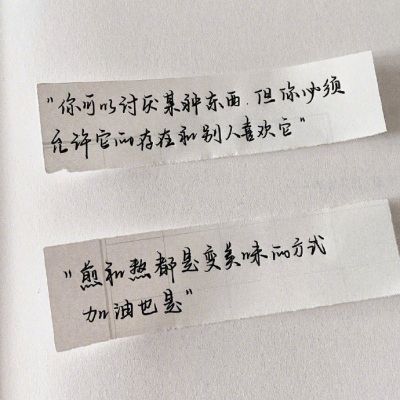 "你可以讨厌某种东西.但你必须
允许它的存在和别人喜欢它"
"煎和熬都是变美味的方式
加油也是"